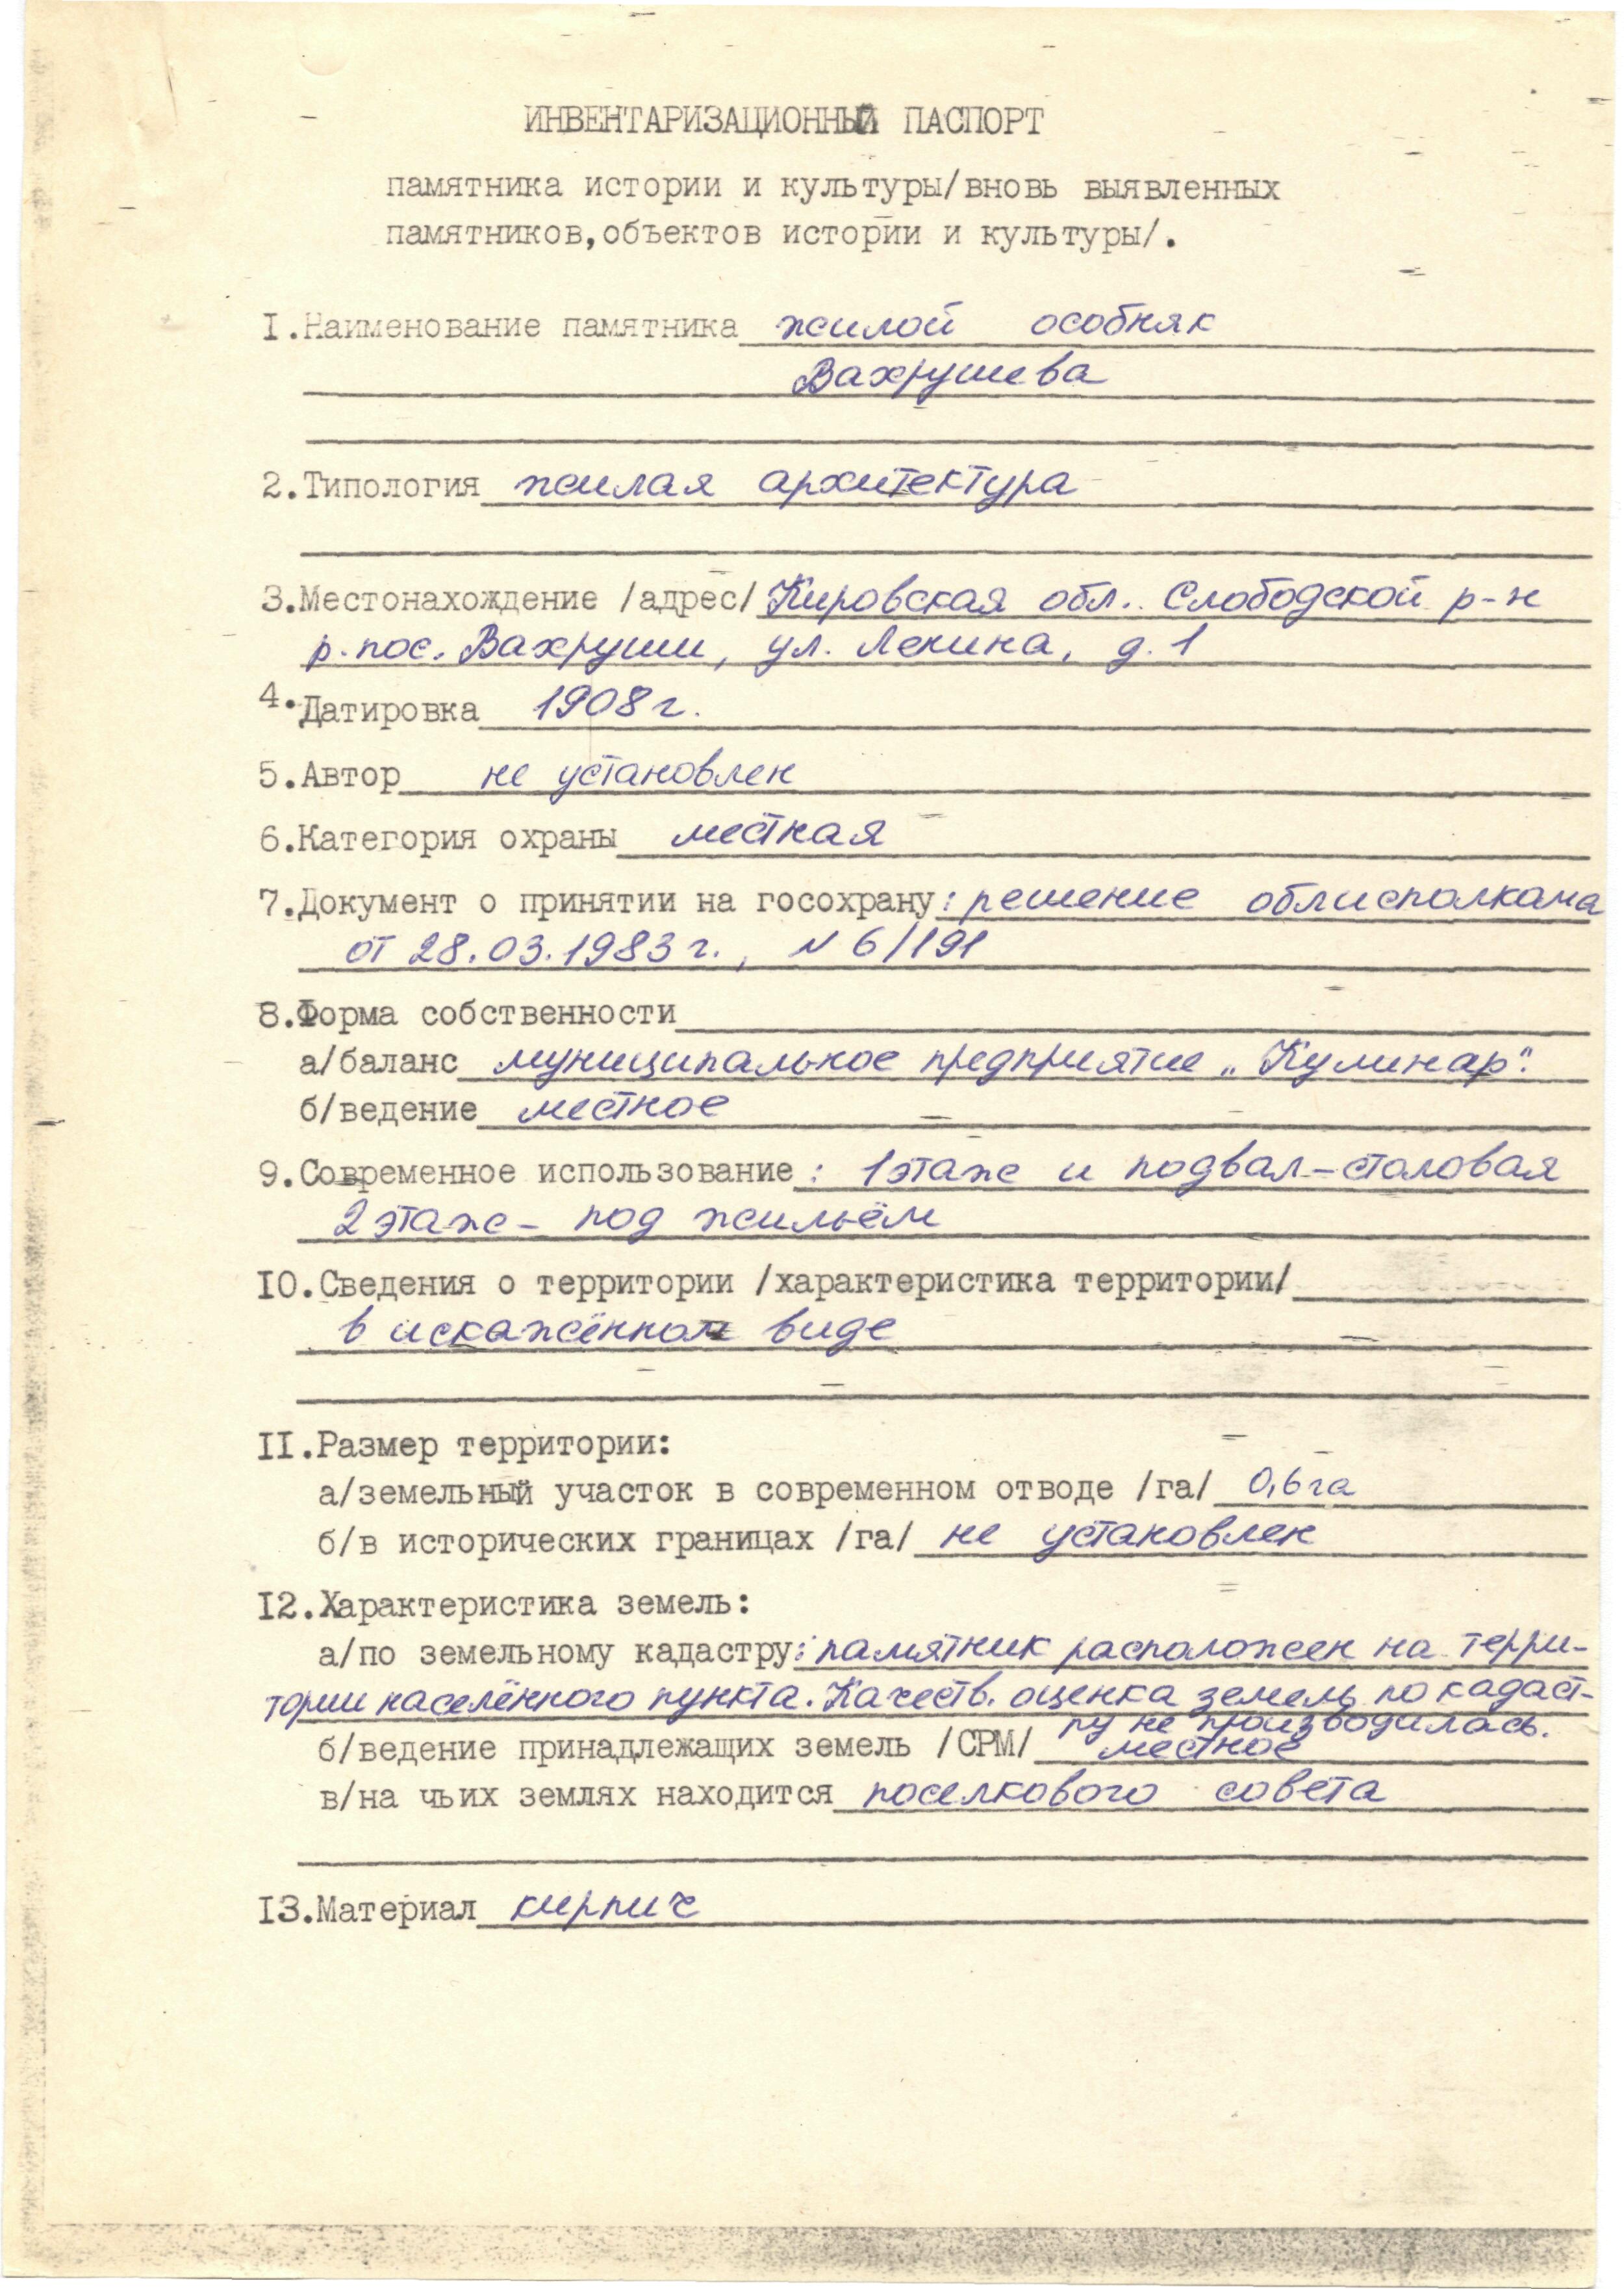 ИНВЕНТАРИЗАЦИОННЫЙ ПАСПОРТ
памятника истории и культуры/вновь выявленных
памятников,объектов истории и культуры/.
I.Наименование памятника жилой особняк
Вахрушева
2.Типология жилая архитектура
3.Местонахождение /адрес/ Кировская обл.. Слободской р-н
р.пос. Вахруши, ул. Ленина, д. 1
4.Датировка 1908 г.
5.Автор не установлен
6.Категория охраны местная
7.Документ о принятии на госохрану: решение облисполкома
от 28.03.1983 г., N 6/191
8.Форма собственности
а/баланс муниципальное предприятие „Кулинар".
б/ведение местное
9.Современное использование: 1 этаж и подвал-столовая
2 этаж - под жильём
10.Сведения о территории /характеристика территории/
в искажённом виде
II.Размер территории:
а/земельный участок в современном отводе /га/ 0,6 га
б/в исторических границах /га/ не установлен
I2.Характеристика земель:
а/по земельному кадастру: памятник расположен на терри-
тории населённого пункта. Качеств. оценка земель по кадаст-
ру не производилась.
б/ведение принадлежащих земель /СРМ/ местное
в/на чьих землях находится поселкового совета
I3.Материал кирпич